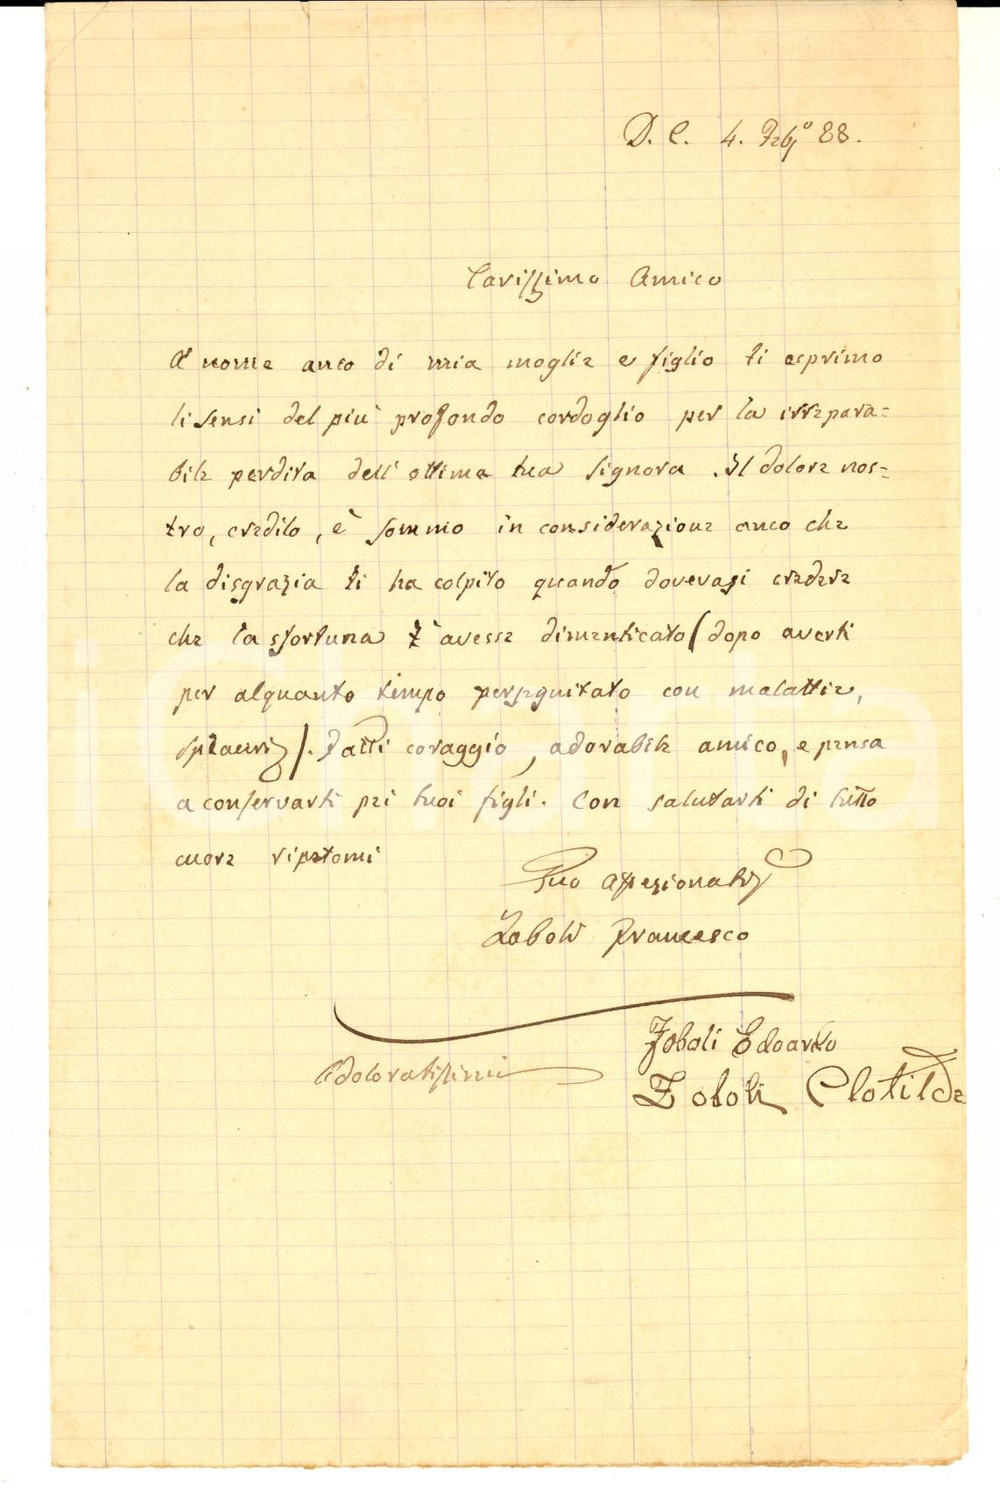 D. C. 4. Feb.º 88.
Carissimo Amico
A nome anco di mia moglie e figlio ti esprimo
li sensi del più profondo cordoglio per la irrepara=
bile perdita dell'ottima tua Signora. Il dolore nos=
tro, credilo, è sommo in considerazione anco che
la disgrazia ti ha colpito quando dovevasi credere
che la sfortuna t'avesse dimenticato (dopo averti
per alquanto tempo perseguitato con malattie,
). Fatti coraggio, adorabile amico, e pensa
a conservarti pei tuoi figli. Con salutarti di tutto
cuore ripetomi
Tuo affezionato
Zoboli Francesco
Zoboli Edoardo
Addoloratissimi
Zoboli Clotilde